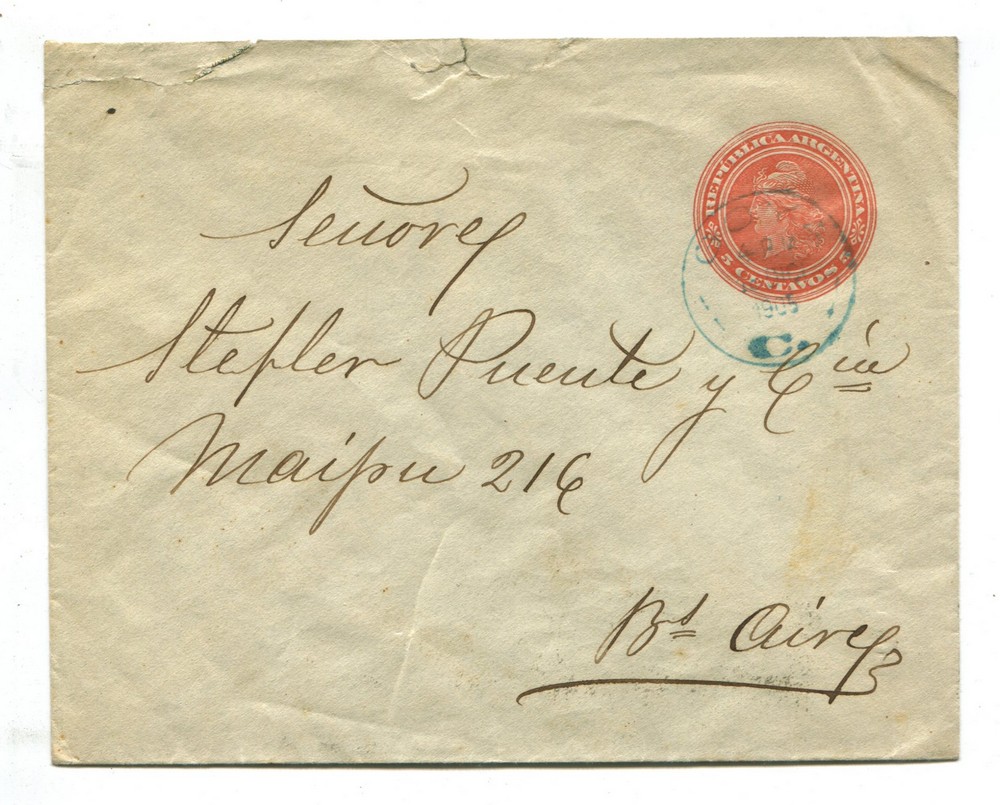 REPUBLICA ARGENTINA
5 CENTAVOS 5
1905
C.
Señores
Stefler Puente y Cía
Maipu 216
Bs Aires